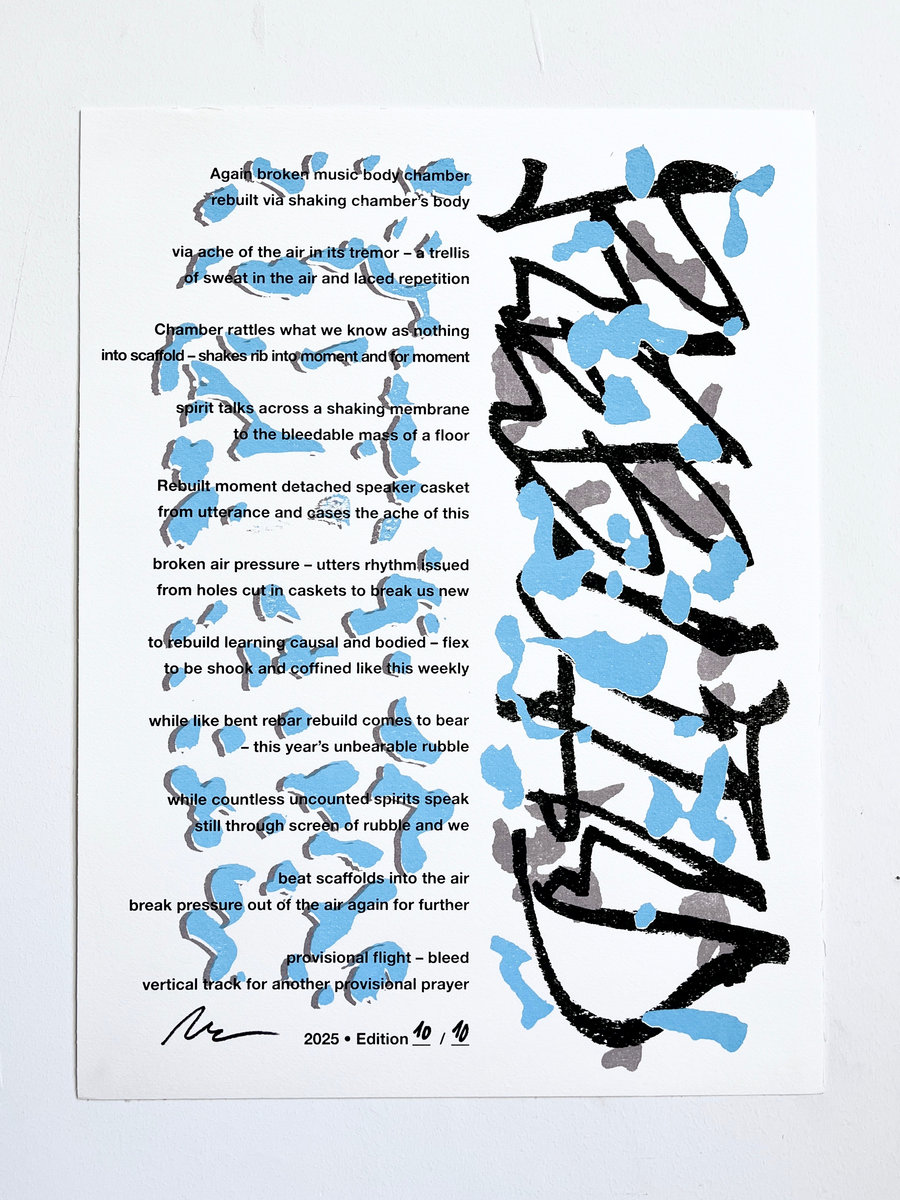 Again broken music body chamber
rebuilt via shaking chamber's body
via ache of the air in its tremor – a trellis
of sweat in the air and laced repetition
Chamber rattles what we know as nothing
into scaffold – shakes rib into moment and for moment
spirit talks across a shaking membrane
to the bleedable mass of a floor
Rebuilt moment detached speaker casket
from utterance and gases the ache of this
broken air pressure – utters rhythm issued
from holes cut in caskets to break us new
to rebuild learning causal and bodied – flex
to be shook and coffined like this weekly
while like bent rebar rebuild comes to bear
– this year's unbearable rubble
while countless uncounted spirits speak
still through screen of rubble and we
beat scaffolds into the air
break pressure out of the air again for further
provisional flight – bleed
vertical track for another provisional prayer
2025 • Edition 10 / 10